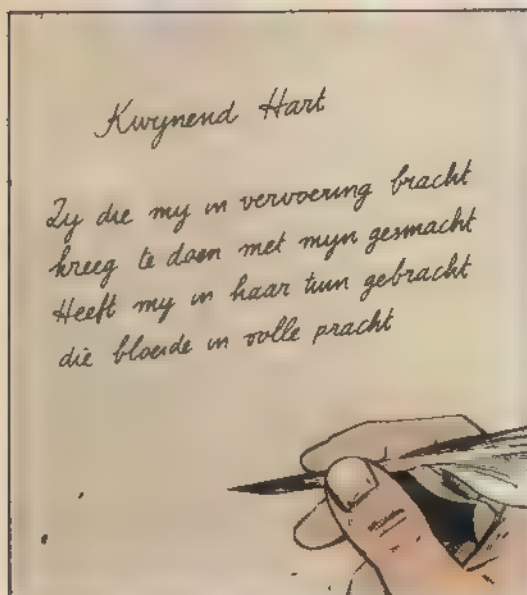 Kwynend Hart
Zy die my in vervoering bracht
kreeg te doen met myn gesmacht
Heeft my in haar tuin gebracht
die bloeide in volle pracht